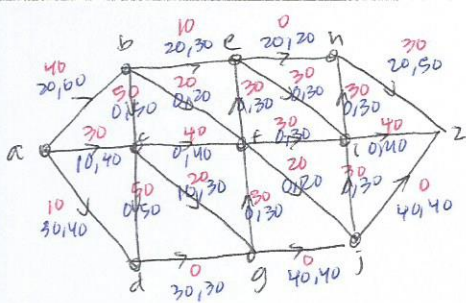 10
0
b
20,30
e
20,20
h
40
20,60
30
20,50
50
0,50
20
0,20
30
0,30
30
0,30
30
0,30
a
30
10,40
c
40
0,40
f
30
0,30
i
40
0,40
z
10
30,40
50
0,50
20
10,30
30
0,30
20
0,20
30
0,30
0
40,40
d
0
30,30
g
0
40,40
j